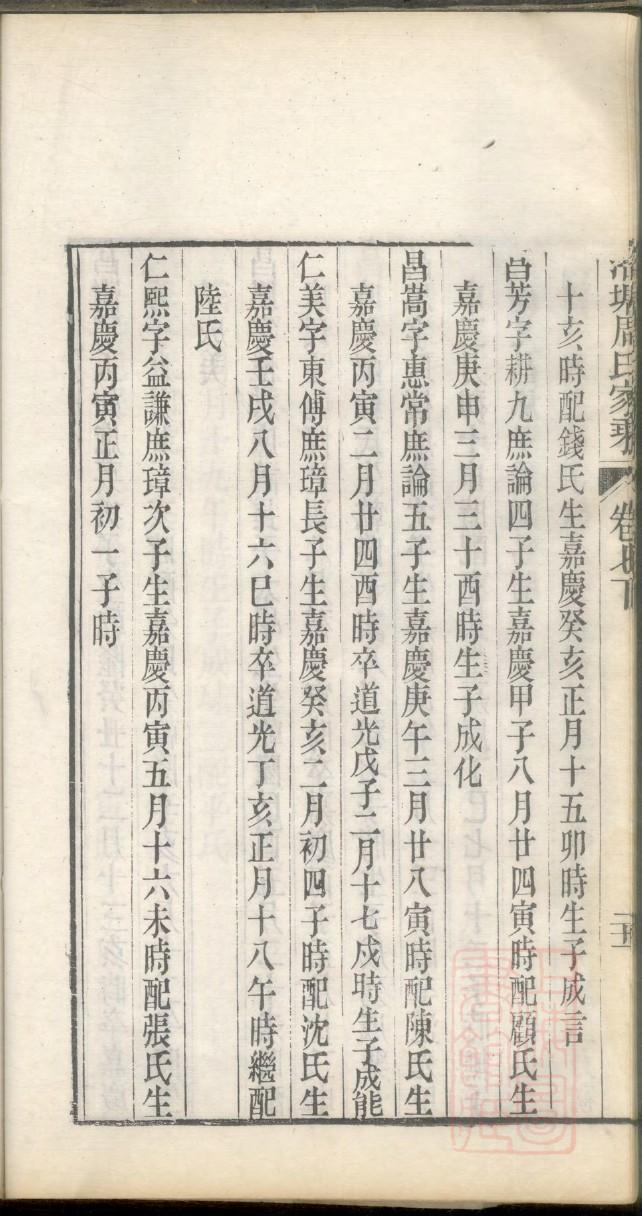 塘周氏家乘
卷
十亥時配錢氏生嘉慶癸亥正月十五卯時生子成言
昌芳字耕九庶論四子生嘉慶甲子八月廿四寅時配顧氏生
嘉慶庚申三月三十酉時生子成化
昌嵩字惠常庶論五子生嘉慶庚午三月廿八寅時配陳氏生
嘉慶丙寅二月廿四酉時卒道光戊子二月十七戌時生子成能
仁美字東傅庶璋長子生嘉慶癸亥二月初四子時配沈氏生
嘉慶壬戌八月十六巳時卒道光丁亥正月十八午時繼配
陸氏
仁熙字益謙庶璋次子生嘉慶丙寅五月十六未時配張氏生
嘉慶丙寅正月初一子時